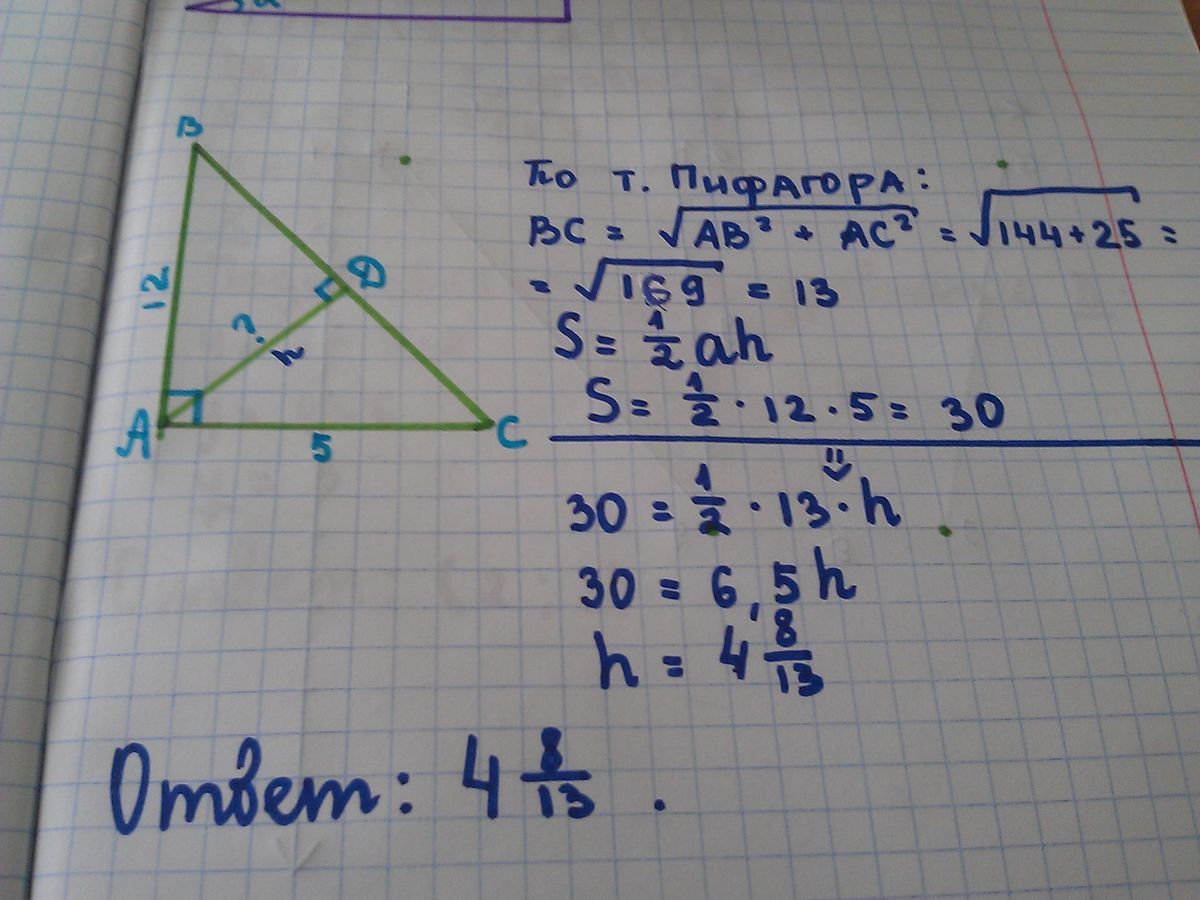 α
B
12
D
?
h
A
5
C
По т. Пифагора:
BC = √AB² + AC² = √144+25 =
= √169 = 13
S = 1/2 ah
S = 1/2 · 12 · 5 = 30
30 = 1/2 · 13 · h
30 = 6,5h
h = 4 8/13
Ответ: 4 8/13 .